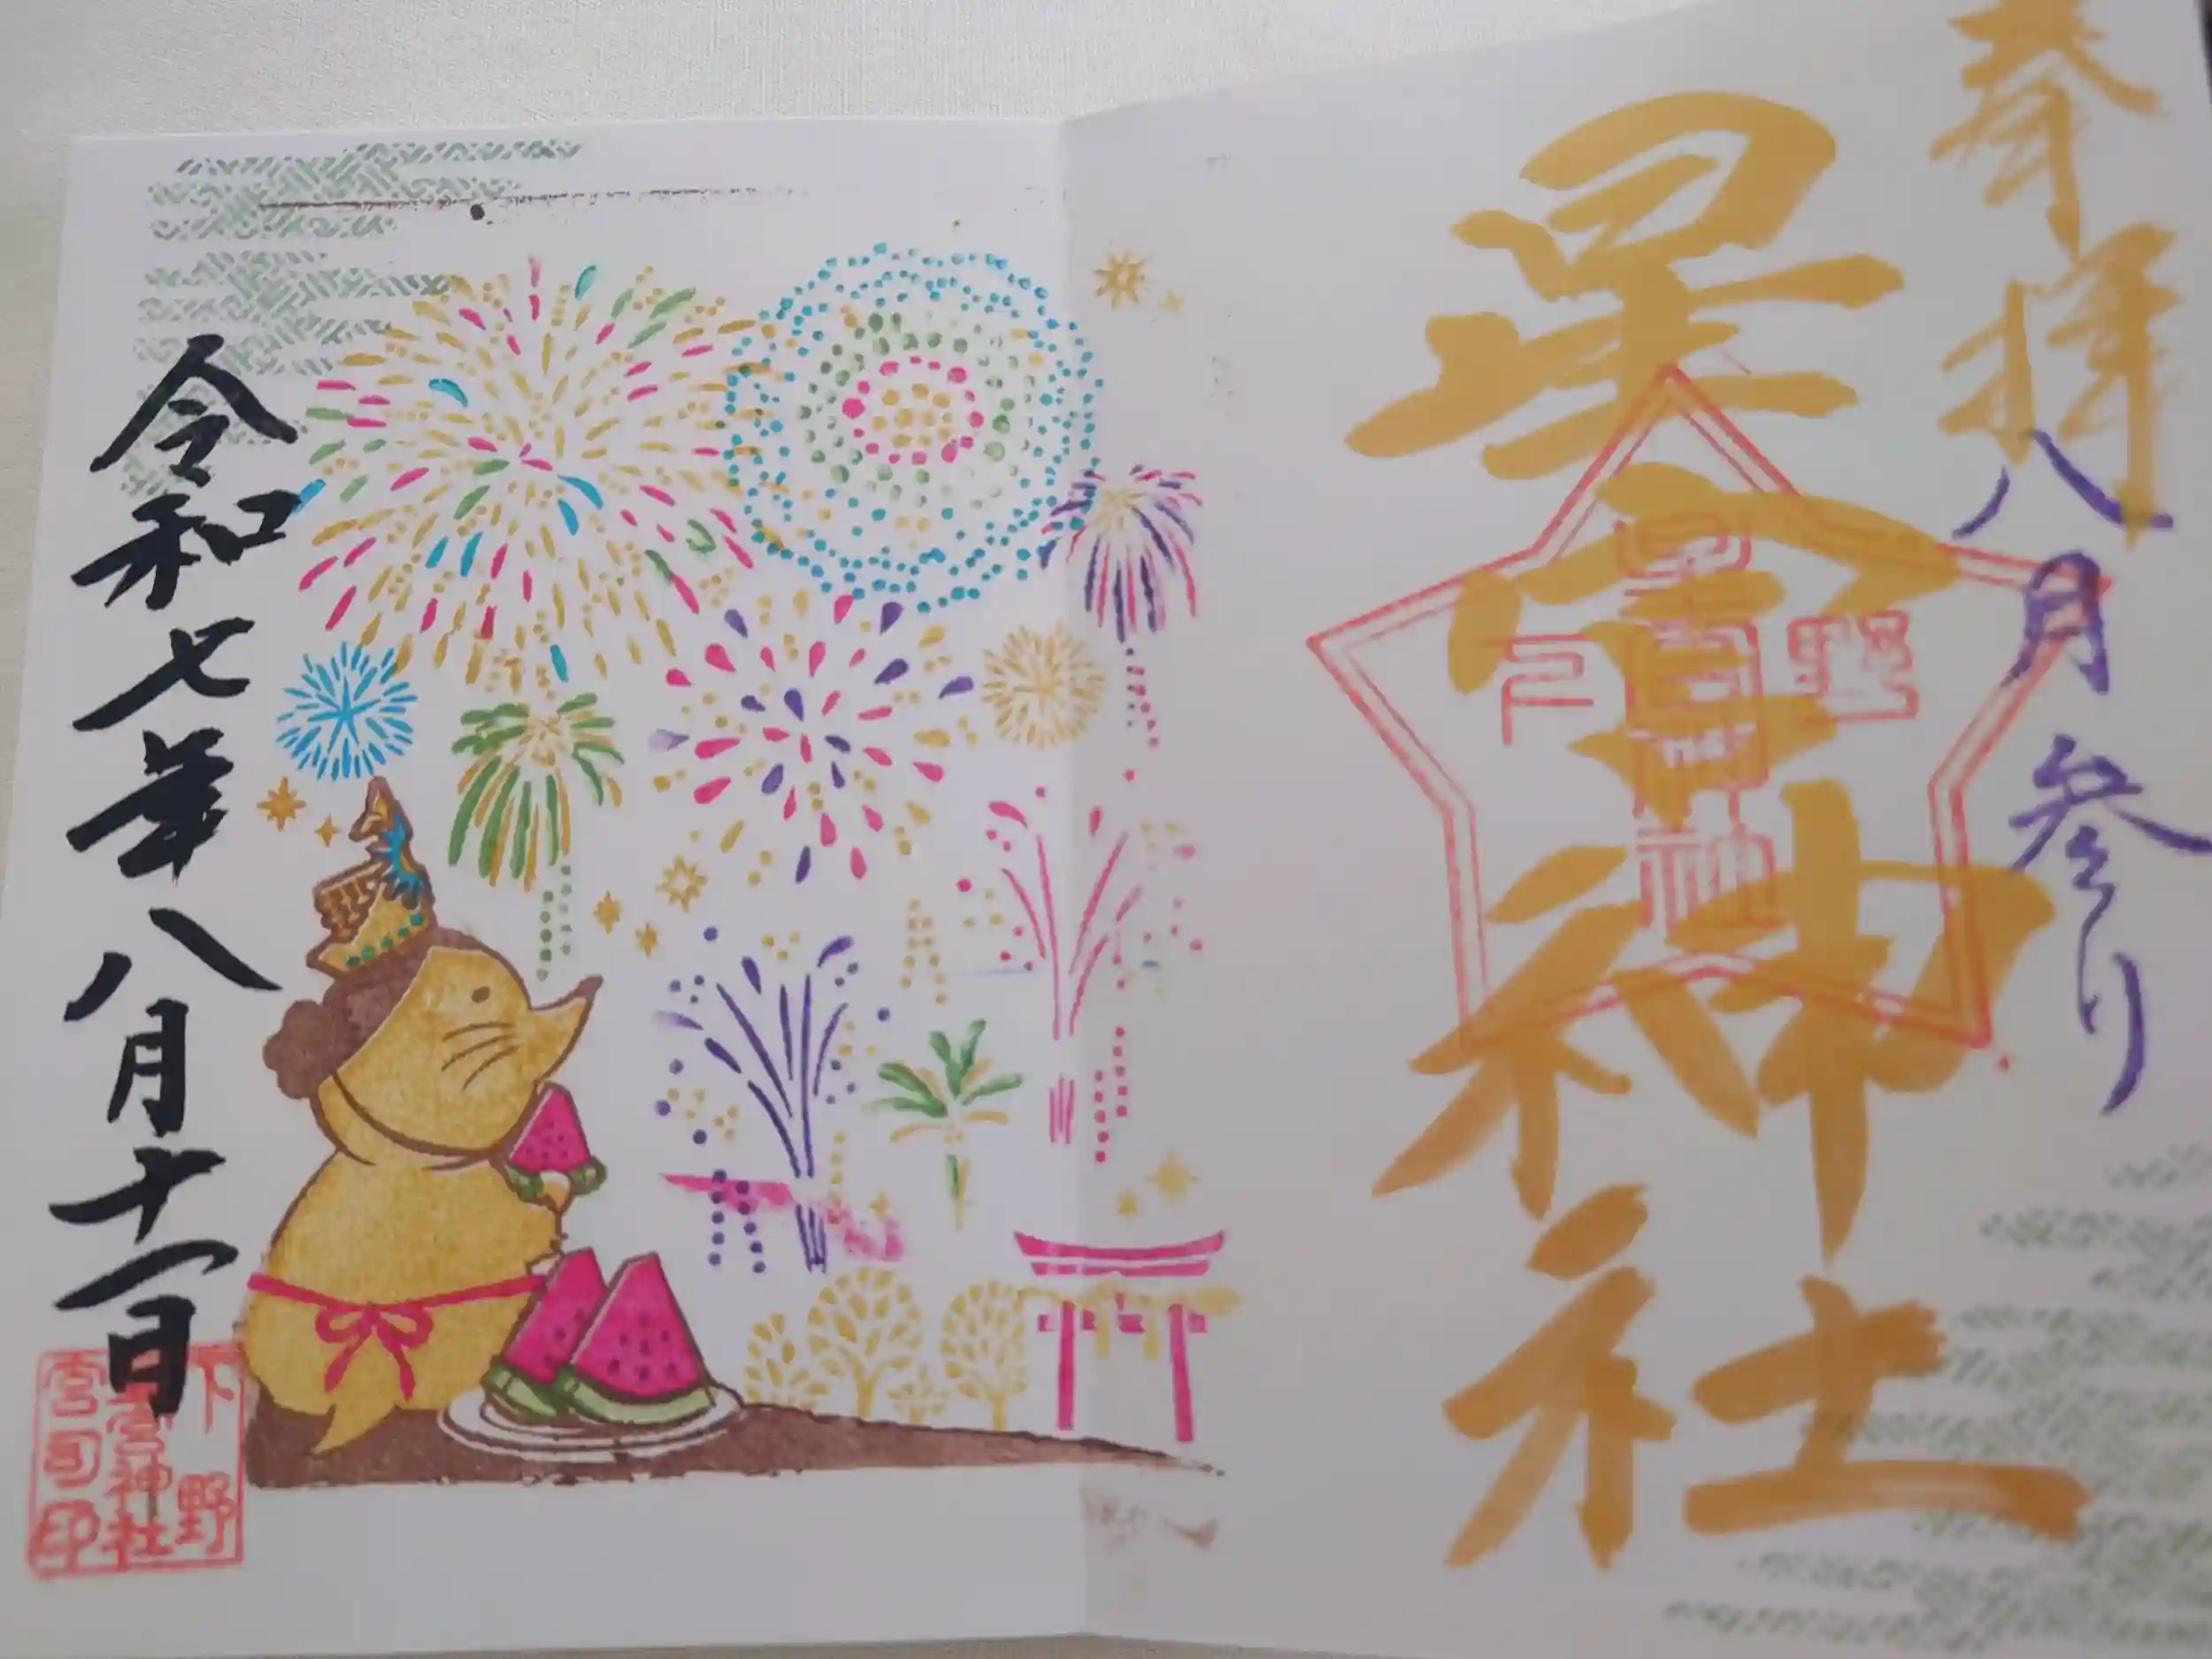 奉拝
八月参り
星宮神社
令和七年八月十一日
下野
星宮神社
宮司印